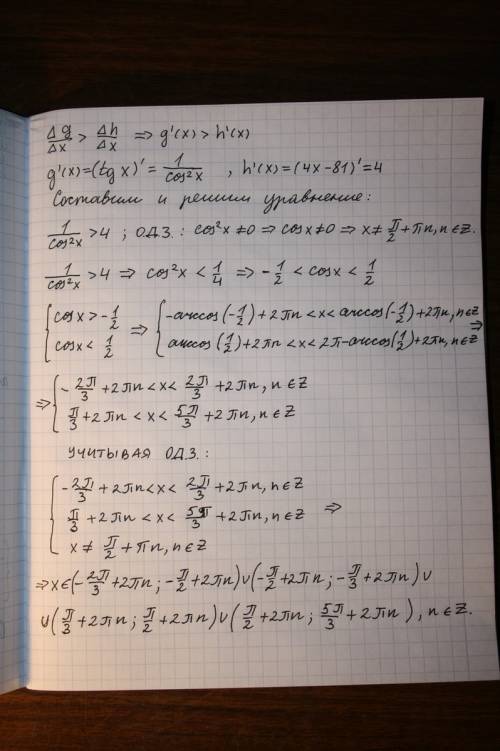 Δg/Δx > Δh/Δx ⇒ g'(x) > h'(x)
g'(x)=(tg x)' = 1/cos²x , h'(x)=(4x-81)'=4
Составим и решим уравнение:
1/cos²x >4 ; О.Д.З.: cos²x ≠0 ⇒ cosx≠0 ⇒ x≠ π/2 +πn, n∈Z.
1/cos²x >4 ⇒ cos²x < 1/4 ⇒ -1/2 < cosx < 1/2
{ cosx > -1/2 ⇒ { -arccos(-1/2)+2πn <x< arccos(-1/2)+2πn, n∈Z ⇒
cosx < 1/2 arccos(1/2)+2πn < x < 2π-arccos(1/2)+2πn, n∈Z
⇒ { -2π/3 +2πn <x< 2π/3 +2πn, n∈Z
π/3 +2πn < x < 5π/3 +2πn, n∈Z
УЧИТЫВАЯ О.Д.З.:
{ -2π/3 +2πn <x< 2π/3 +2πn, n∈Z
π/3 +2πn < x < 5π/3 +2πn, n∈Z ⇒
x ≠ π/2 +πn, n∈Z
⇒ x∈(-2π/3 +2πn; -π/2 +2πn)∪(-π/2 +2πn; -π/3 +2πn) ∪
∪(π/3 +2πn; π/2 +2πn)∪(π/2 +2πn; 5π/3 +2πn), n∈Z.